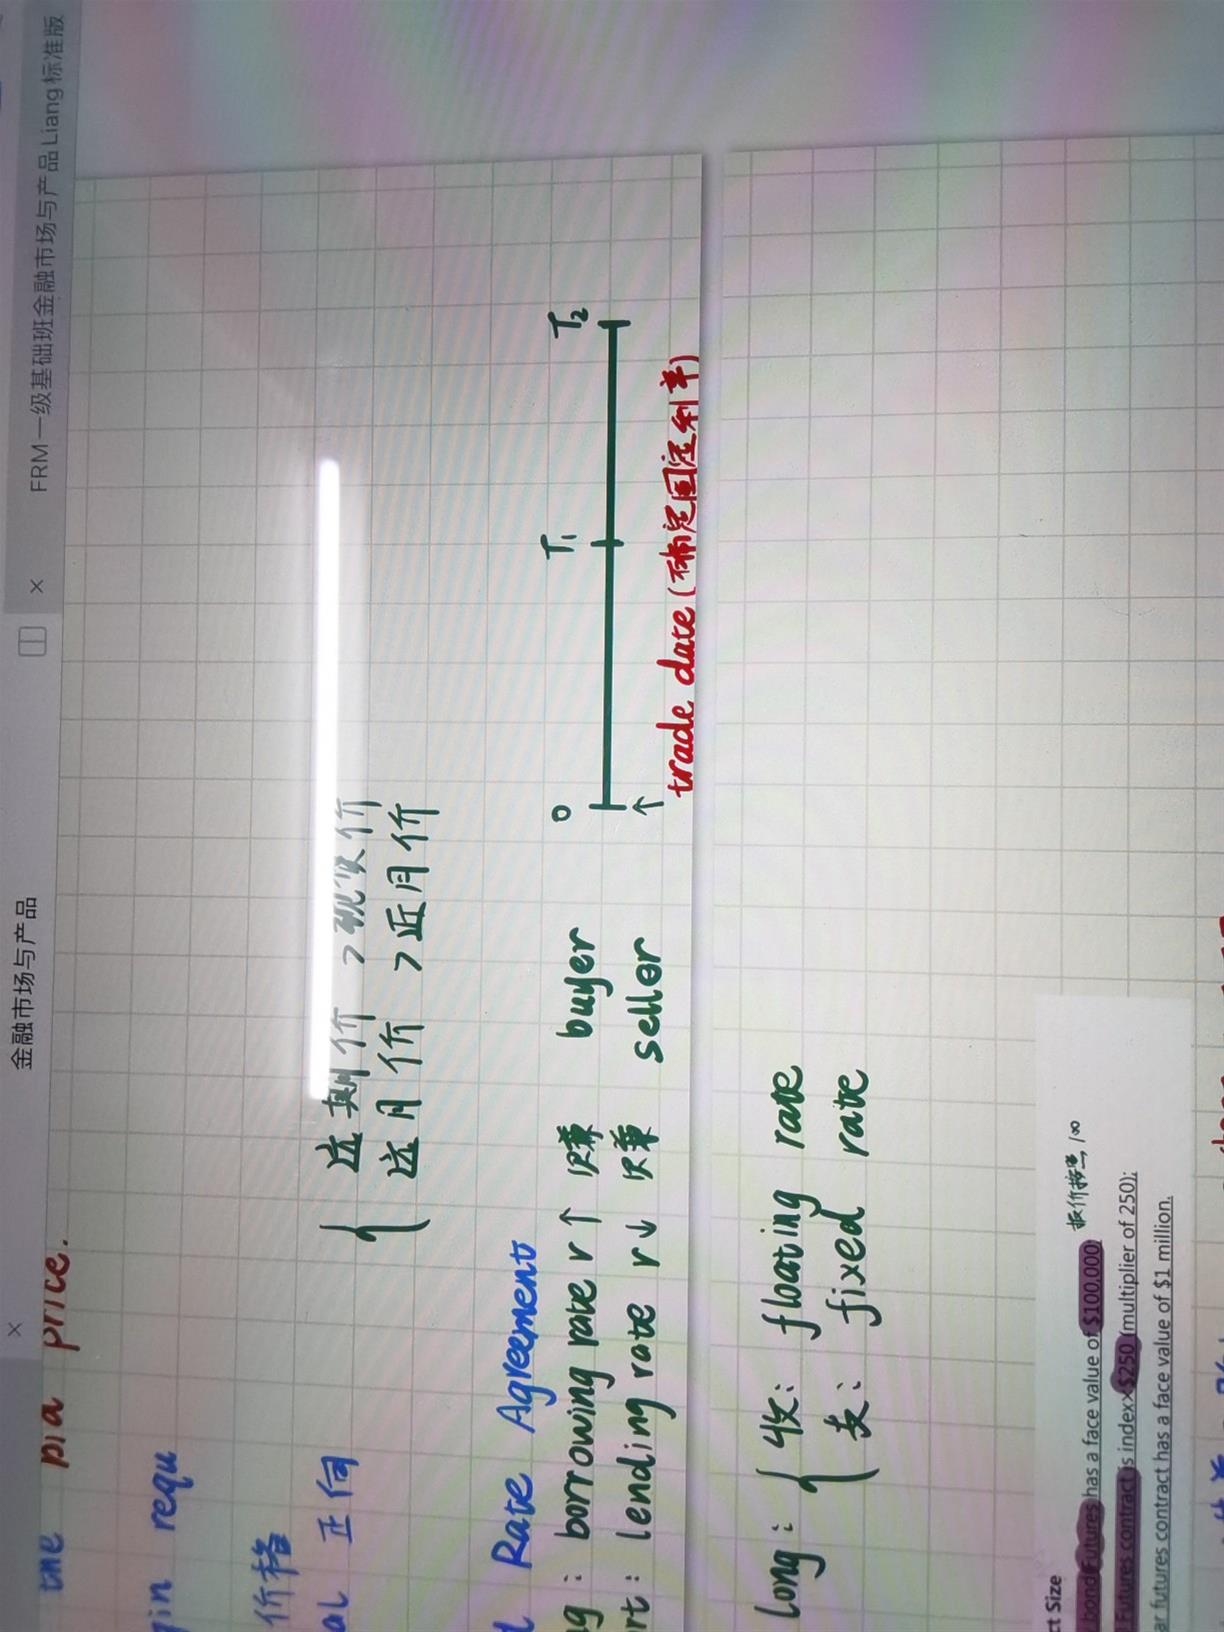 金融市场与产品
FRM一级基础班金融市场与产品Liang标准版
the bid price.
requ
价格
正向
远期价 > 现货价
远月价 > 近月价
Rate Agreement
borrowing rate r↑ 赚 buyer
lending rate r↓ 赚 seller
0 T₁ T₂
↑
trade date (确定固定利率)
long: { 收: floating rate
支: fixed rate
Size
bond futures has a face value of $100,000)
Futures contract is index×$250 (multiplier of 250);
ar futures contract has a face value of $1 million.